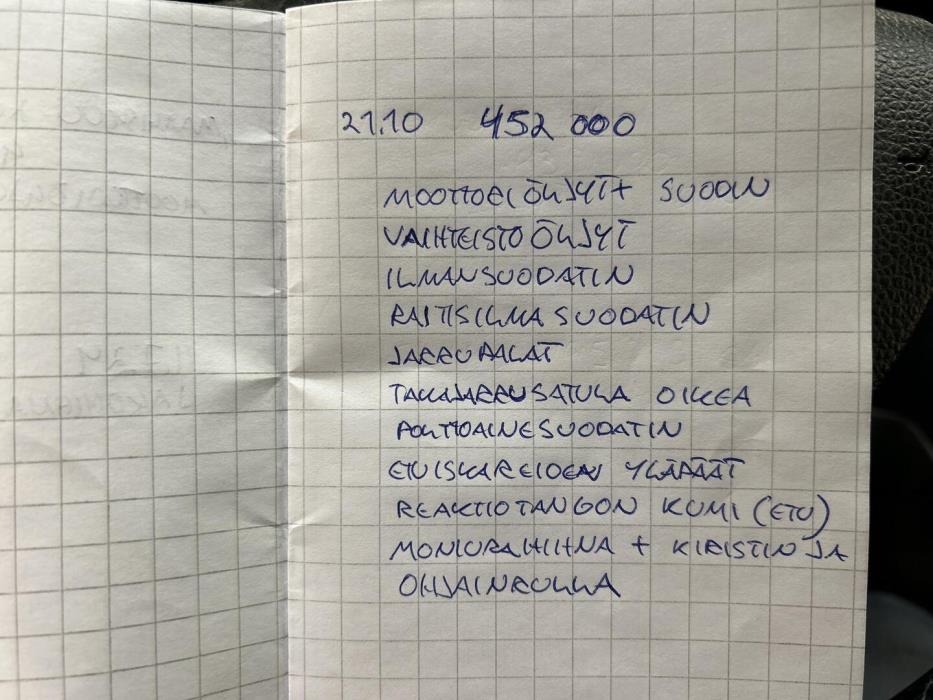 21.10 452 000
MOOTTORIÖLJYT + SUODIN
VAIHTEISTOÖLJYT
ILMANSUODATIN
RAITISILMASUODATIN
JARRUPALAT
TAKAJARRUSATULA OIKEA
POLTTOAINESUODATIN
ETUISKAREIDEN YLÄPÄÄT
REAKTIOTANGON KUMI (ETU)
MONIURAHIHNA + KIRISTIN JA
OHJAINRULLA